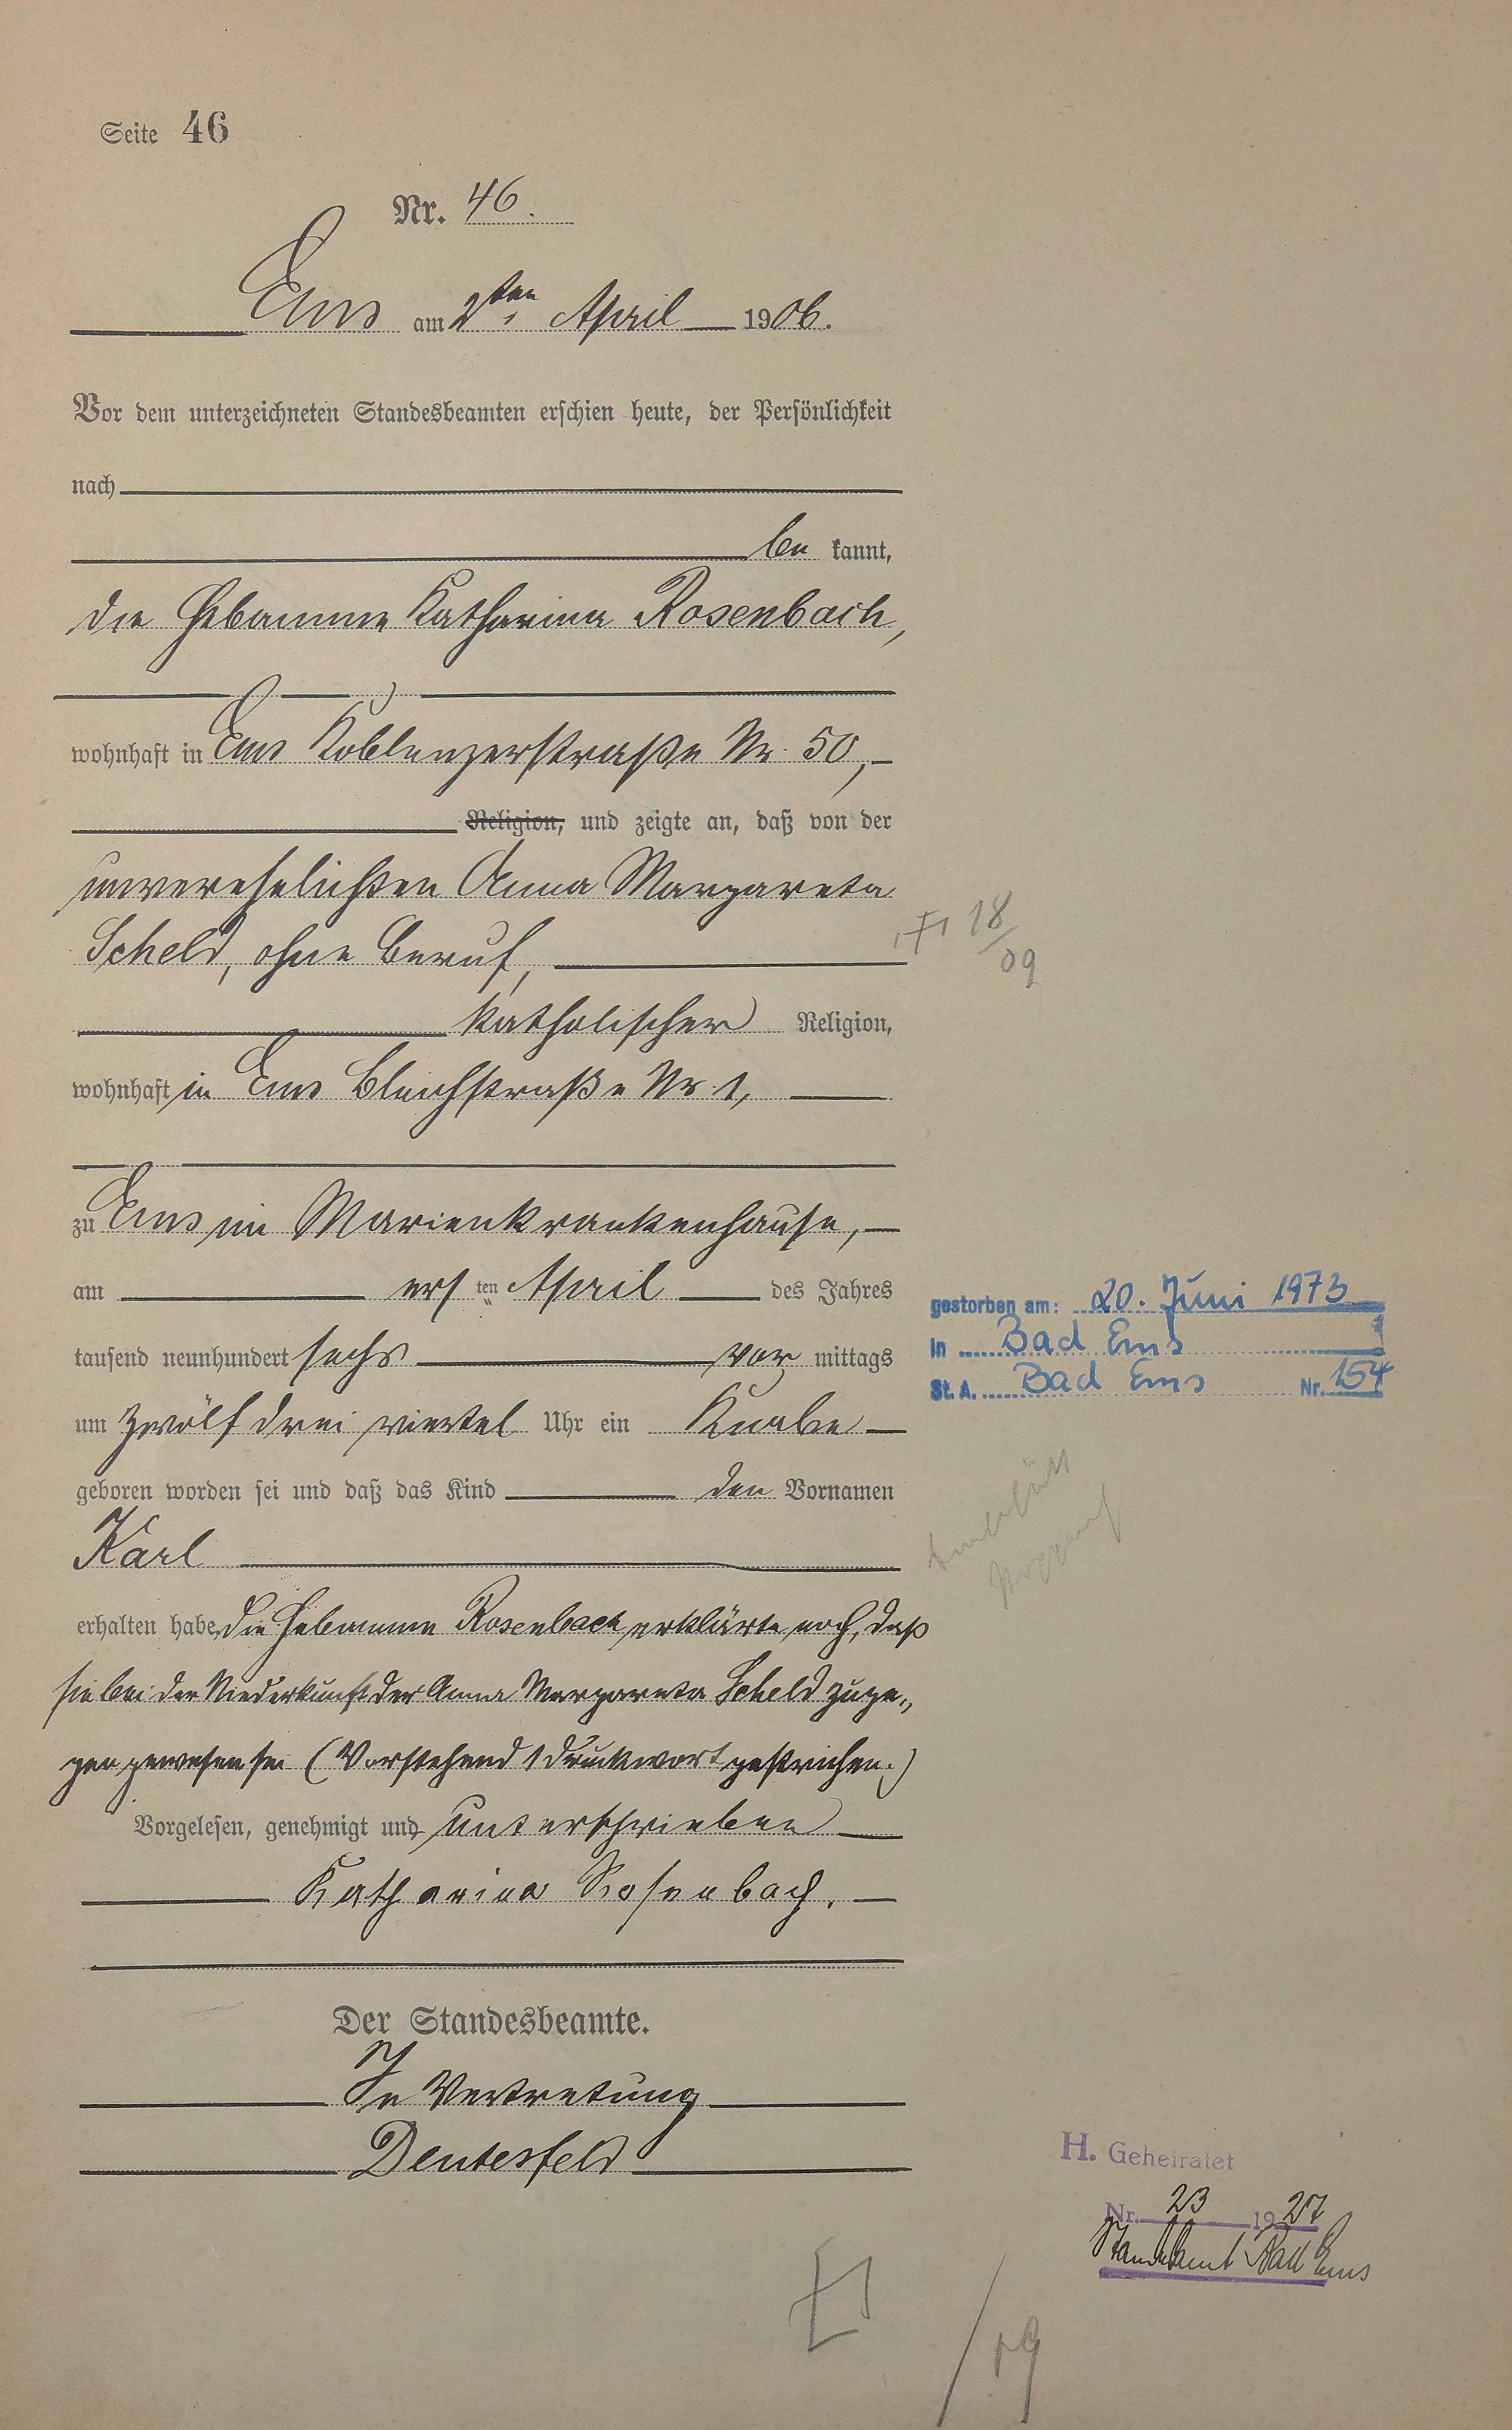 Seite 46
Nr. 46.
Ems am 2ten April 1906.
Vor dem unterzeichneten Standesbeamten erschien heute, der Persönlichkeit
nach
be kannt,
die Hebamme Katharina Rosenbach,
wohnhaft in Ems Koblenzerstraße Nr. 50,
Religion, und zeigte an, daß von der
unverehelichten Anna Margareta
Scheld, ohne Beruf,
18/09
katholischer Religion,
wohnhaft in Ems Bleichstraße Nr. 1,
zu Ems im Marienkrankenhause,
am ersten April des Jahres
tausend neunhundert sechs vor mittags
um zwölf drei viertel Uhr ein Knabe
geboren worden sei und daß das Kind den Vornamen
Karl
erhalten habe. Die Hebamme Rosenbach erklärte noch, daß
sie bei der Niederkunft der Anna Margareta Scheld zuge„
gen gewesen sei (Vorstehend 1 Druckwort gestrichen.)
Vorgelesen, genehmigt und unterschrieben
Katharina Rosenbach.
Der Standesbeamte.
In Vertretung
Deutesfeld
gestorben am: 20. Juni 1973
in Bad Ems
St. A. Bad Ems Nr. 154
H. Geheiratet
Nr. 23 1927
Standesamt Bad Ems